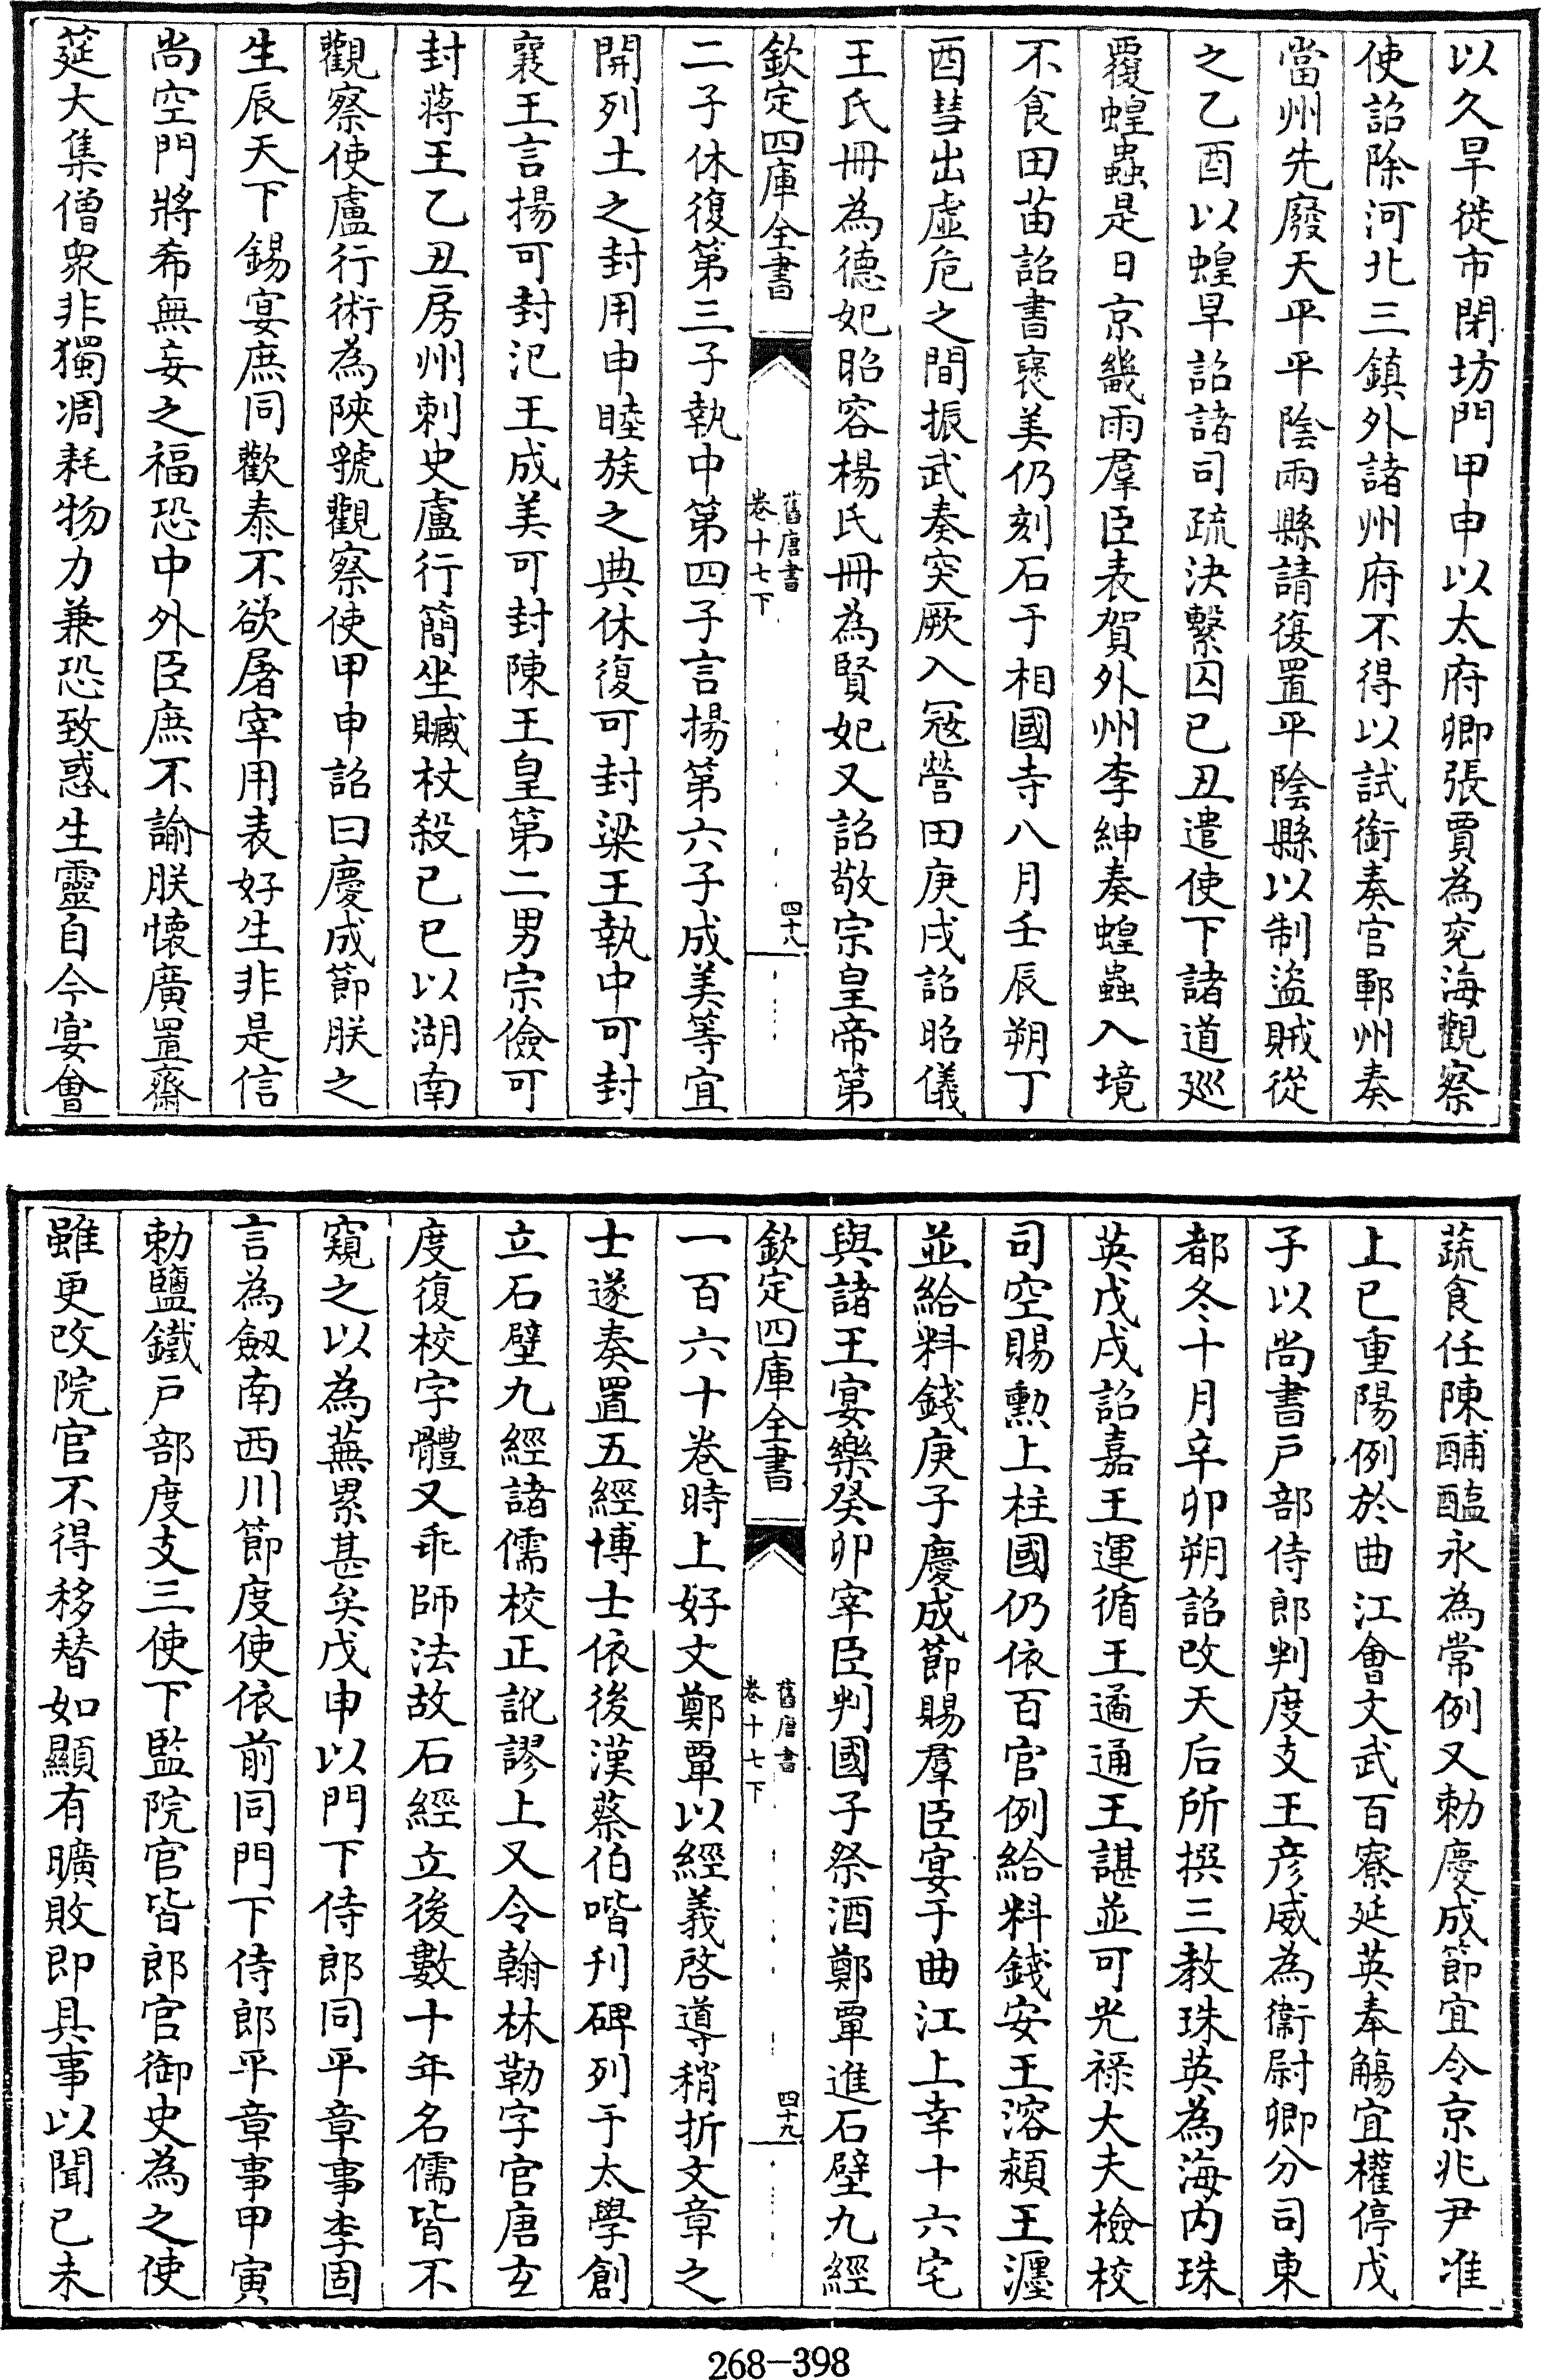 以久旱徙市閉坊門甲申以太府卿張賈為兖海觀察
使詔除河北三鎮外諸州府不得以試銜奏官鄆州奏
當州先廢天平平陰兩縣請復置平陰縣以制盜賊從
之乙酉以蝗旱詔諸司疏決繫囚已丑遣使下諸道廵
覆蝗蟲是日京畿雨羣臣表賀外州李紳奏蝗蟲入境
不食田苗詔書褒美仍刻石于相國寺八月壬辰朔丁
酉彗出虛危之間振武奏突厥入寇營田庚戌詔昭儀
王氏冊為德妃昭容楊氏冊為賢妃又詔敬宗皇帝第
欽定四庫全書
舊唐書
卷十七下
四十八
二子休復第三子執中第四子言揚第六子成美等宜
開列土之封用申睦族之典休復可封梁王執中可封
襄王言揚可封汜王成美可封陳王皇第二男宗儉可
封蔣王乙丑房州刺史盧行簡坐贓杖殺已巳以湖南
觀察使盧行術為陝虢觀察使甲申詔曰慶成節朕之
生辰天下錫宴庶同歡泰不欲屠宰用表好生非是信
尚空門將希無妄之福恐中外臣庶不諭朕懷廣置齋
筵大集僧衆非獨凋耗物力兼恐致惑生靈自今宴會
蔬食任陳脯醢永為常例又勅慶成節宜令京兆尹准
上巳重陽例於曲江會文武百寮延英奉觴宜權停戊
子以尚書戶部侍郎判度支王彦威為衞尉卿分司東
都冬十月辛卯朔詔改天后所撰三教珠英為海内珠
英戊戌詔嘉王運循王遹通王諶並可光禄大夫檢校
司空賜勲上柱國仍依百官例給料錢安王溶潁王瀍
並給料錢庚子慶成節賜羣臣宴于曲江上幸十六宅
與諸王宴樂癸卯宰臣判國子祭酒鄭覃進石壁九經
欽定四庫全書
舊唐書
卷十七下
四十九
一百六十卷時上好文鄭覃以經義啓導稍折文章之
士遂奏置五經博士依後漢蔡伯喈刋碑列于太學創
立石壁九經諸儒校正訛謬上又令翰林勒字官唐玄
度復校字體又乖師法故石經立後數十年名儒皆不
窺之以為蕪累甚矣戊申以門下侍郎同平章事李固
言為劒南西川節度使依前同門下侍郎平章事甲寅
勅鹽鐵戶部度支三使下監院官皆郎官御史為之使
雖更改院官不得移替如顯有曠敗即具事以聞已未
268-398